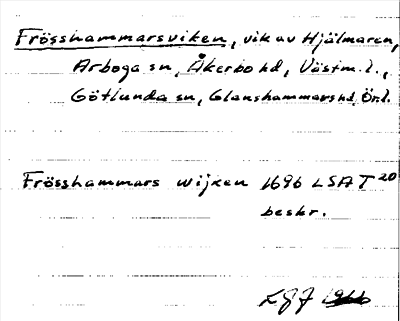 Frösshammarsviken, vik av Hjälmaren,
Arboga sn, Åkerbo hd, Västm. l.,
Götlunda sn, Glanshammars hd, Örl.
Frösshammars wijken 1696 LSA T 20
beskr.